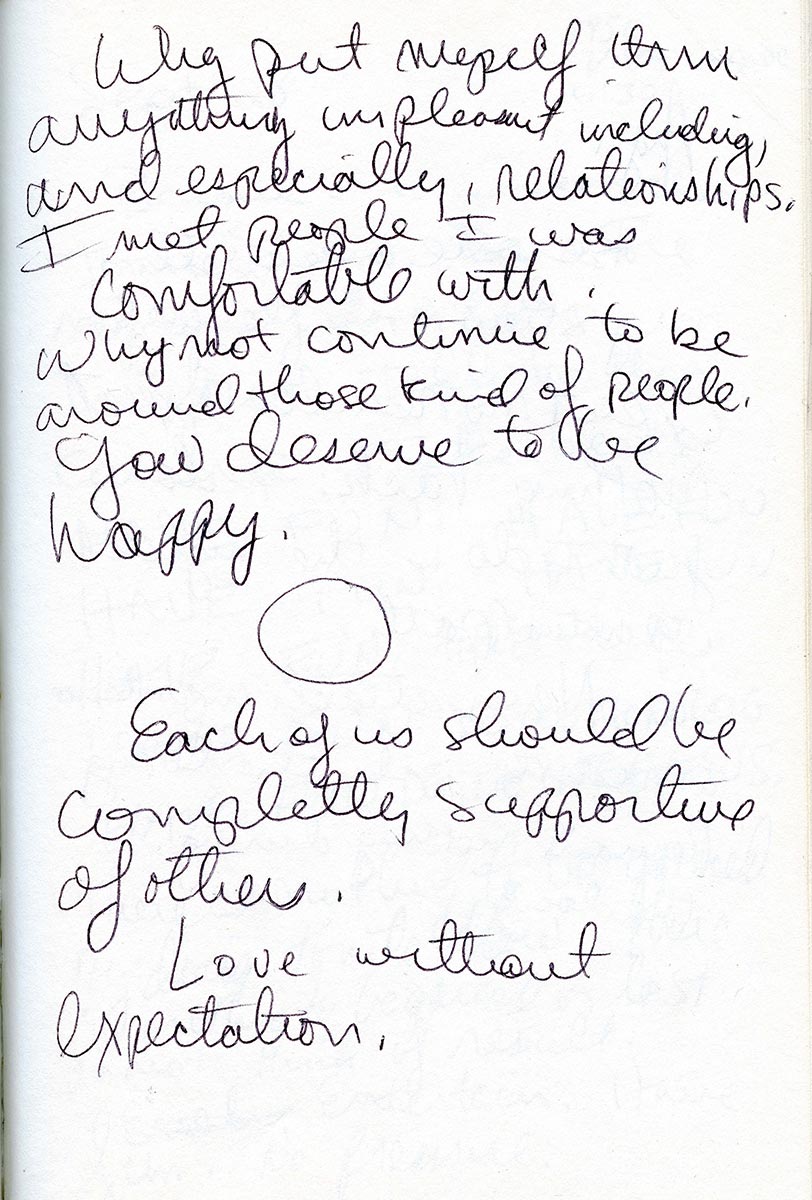 Why put myself thru
anything unpleasant including,
and especially, relationships.
I met people I was
comfortable with.
Why not continue to be
around those kind of people.
You deserve to be
happy.
Each of us should be
completly supportive
of others.
Love without
expectation.